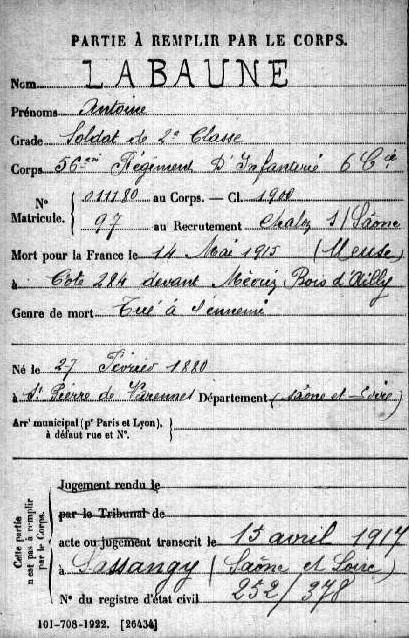 PARTIE À REMPLIR PAR LE CORPS.
Nom LABAUNE
Prénoms Antoine
Grade Soldat de 2e Classe
Corps 56ème Régiment D'Infanterie 6 Cie
N° Matricule. 011180 au Corps. — Cl. 1900
97 au Recrutement Chalon s/Saône
Mort pour la France le 14 Mai 1915 (Meuse)
à Côte 284 devant Bois d'Ailly
Genre de mort Tué à l'ennemi
Né le 27 Février 1880
à St Pierre de Varennes Département (Saône et Loire)
Arrt municipal (pr Paris et Lyon), à défaut rue et N°.
Cette partie n'est pas à remplir par le Corps.
Jugement rendu le
par le Tribunal de
acte ou jugement transcrit le 15 avril 1917
à Sassangy (Saône et Loire)
N° du registre d'état civil 252/378
101-708-1922. [26434]